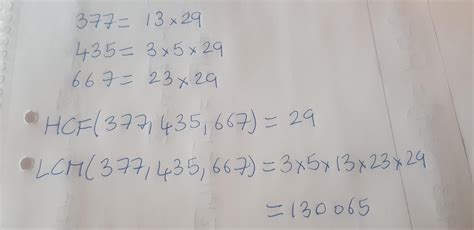 377 = 13 × 29
435 = 3 × 5 × 29
667 = 23 × 29
HCF(377, 435, 667) = 29
LCM(377, 435, 667) = 3×5×13×23×29
= 130065